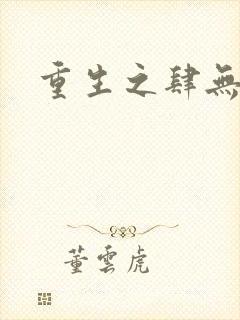 重生之肆無
董雲虎